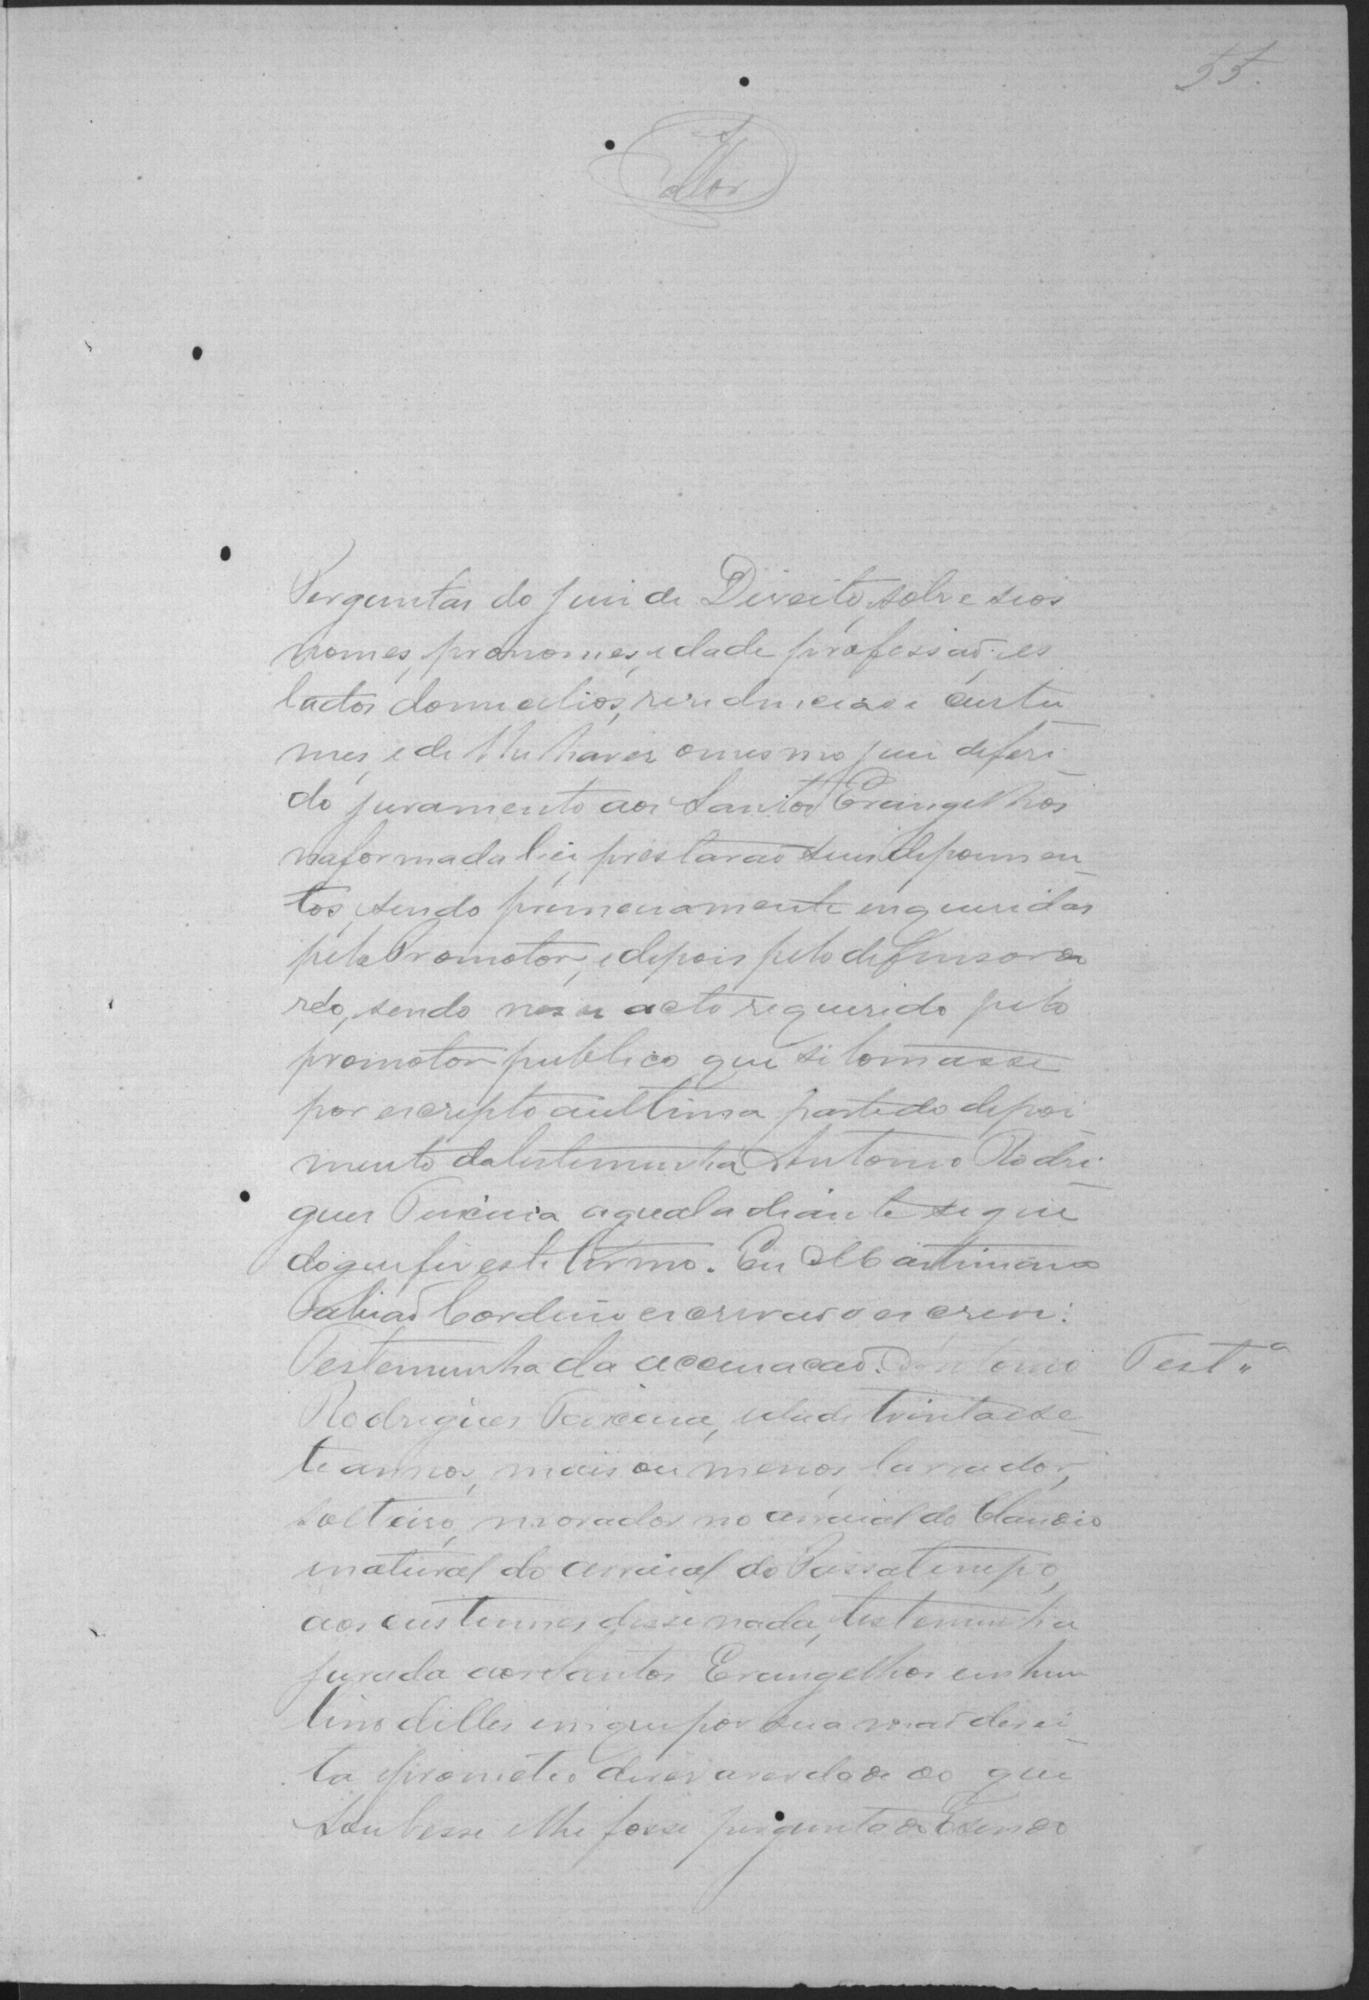 55.
Perguntas do juiz de Direito, sobre seos
nomes, pronomes, edade, professaõ, es
tados domicilios, residencias e custu
mes, e de lhe haver o mesmo juiz deferi
do juramento aos Santos Evangelhos
na forma da lei, prestaraõ seus depoimen
tos, sendo primeiramente inqueridas
pelo Promotor, e depois pelo defensor do
réo, sendo nesse acto requerido pelo
promotor publico que se tomasse
por escripto a ultima parte do depoi
mento da testemunha Antonio Rodri
gues Teixeira, a qual adiante segue
do que fiz este termo. Eu Martiniano
Cordeiro escrivaõ o escrevi:
Testemunha da accuzacaõ. Antonio
Test.ª
Rodrigues Teixeira, edade trinta e se
te annos, mais ou menos, lavrador,
solteiro, morador no arraial do Claudio
e natural do arraial do Passatempo,
aos custumes disse nada, testemunha
jurada aos Santos Evangelhos em hum
livro delles em que por sua maõ direi
ta prometeo dizer a verdade do que
soubesse e lhe fosse perguntado E sendo